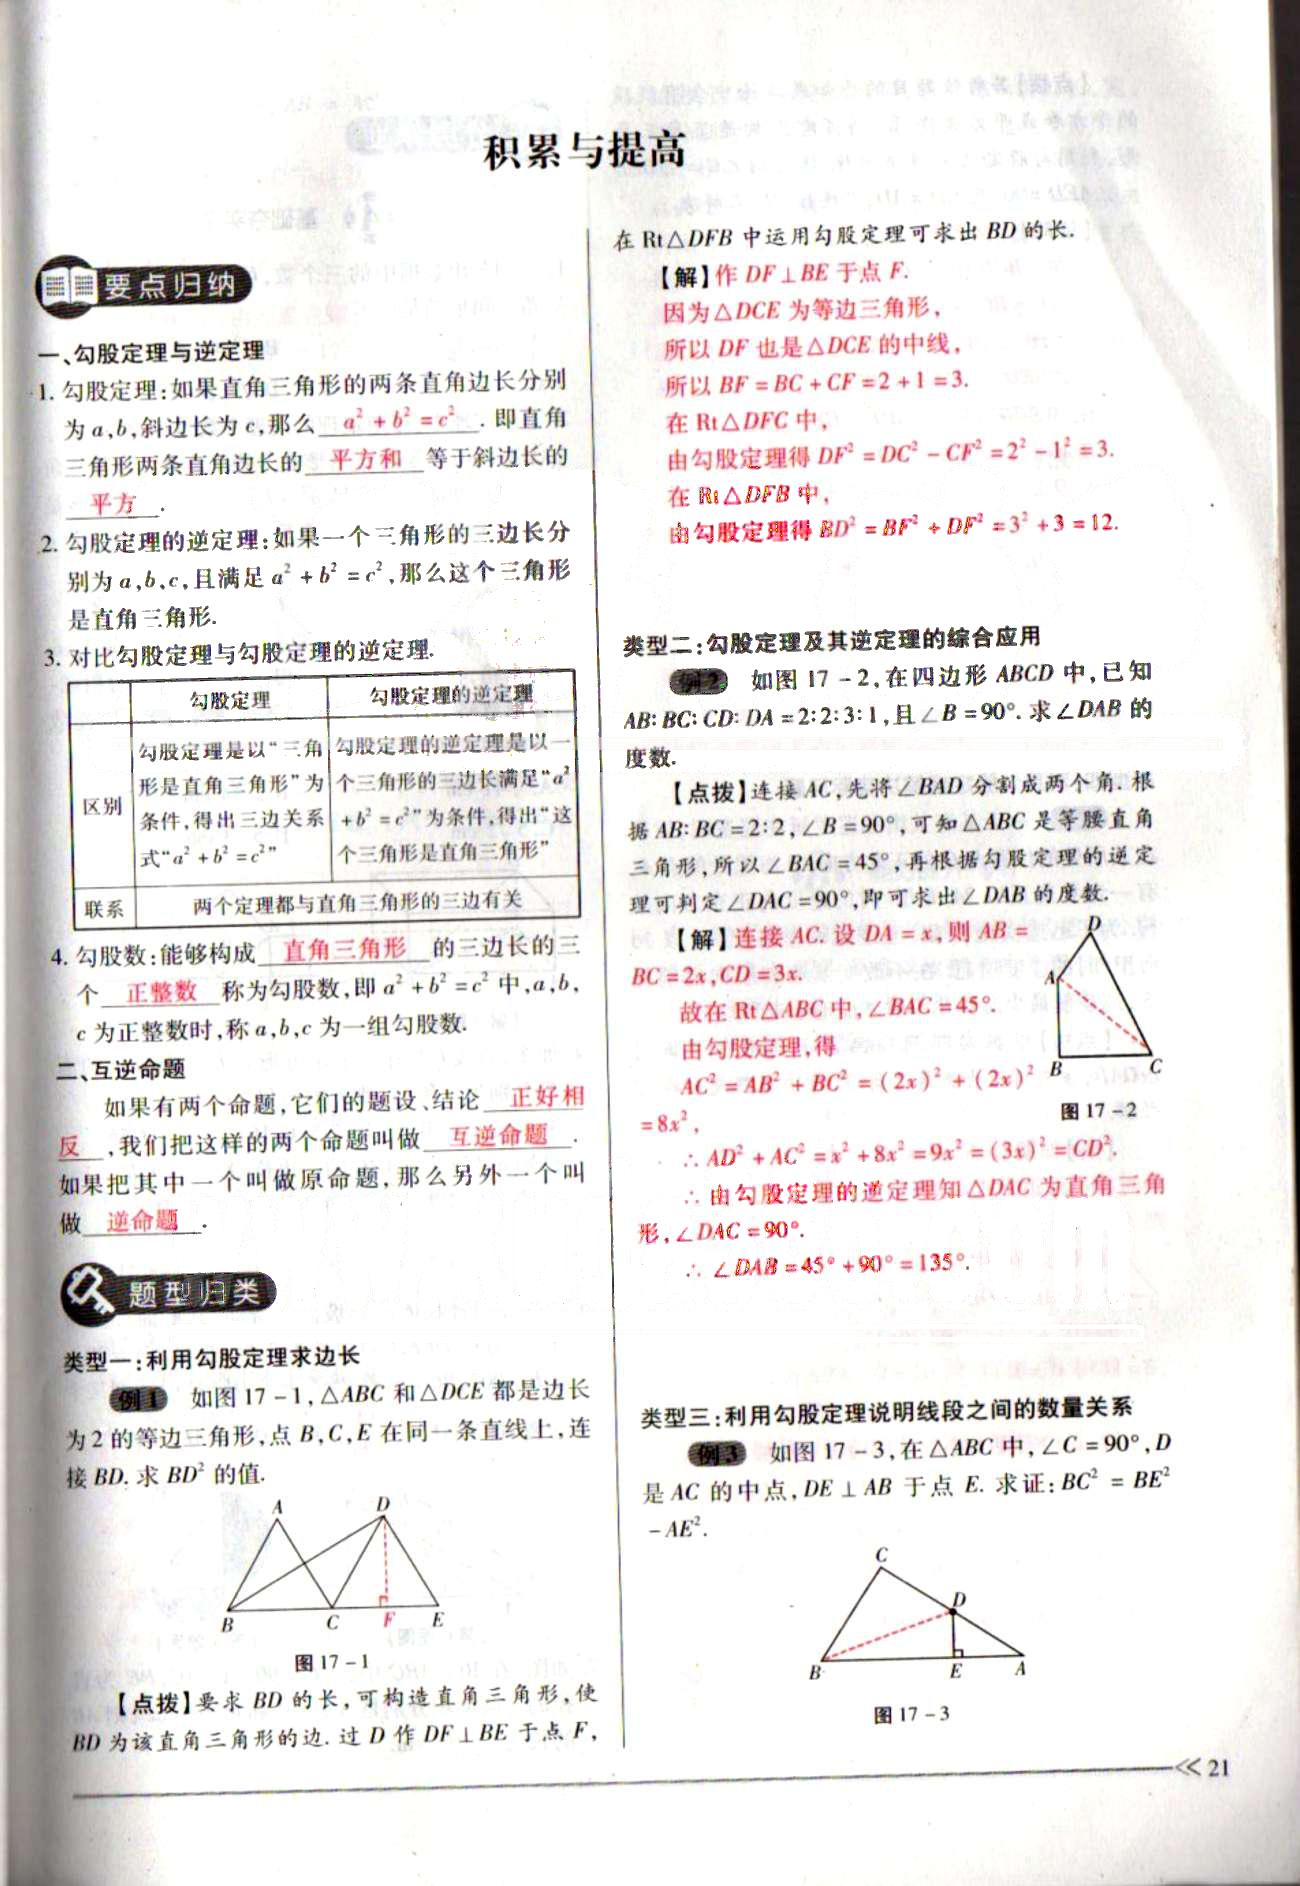 积累与提高
要点归纳
一、勾股定理与逆定理
1. 勾股定理:如果直角三角形的两条直角边长分别
为a,b,斜边长为c,那么 a²+b²=c² . 即直角
三角形两条直角边长的 平方和 等于斜边长的
平方 .
2. 勾股定理的逆定理:如果一个三角形的三边长分
别为a,b,c,且满足a²+b²=c²,那么这个三角形
是直角三角形.
3. 对比勾股定理与勾股定理的逆定理.
勾股定理 勾股定理的逆定理
区别
勾股定理是以“三角
形是直角三角形”为
条件,得出三边关系
式“a²+b²=c²”
勾股定理的逆定理是以一
个三角形的三边长满足“a²
+b²=c²”为条件,得出“这
个三角形是直角三角形”
联系 两个定理都与直角三角形的三边有关
4. 勾股数:能够构成 直角三角形 的三边长的三
个 正整数 称为勾股数,即a²+b²=c²中,a,b,
c为正整数时,称a,b,c为一组勾股数.
二、互逆命题
如果有两个命题,它们的题设、结论 正好相
反 ,我们把这样的两个命题叫做 互逆命题 .
如果把其中一个叫做原命题,那么另外一个叫
做 逆命题 .
题型归类
类型一:利用勾股定理求边长
例1 如图17-1,△ABC和△DCE都是边长
为2的等边三角形,点B,C,E在同一条直线上,连
接BD. 求BD²的值.
A D
B C F E
图17-1
【点拨】要求BD的长,可构造直角三角形,使
BD为该直角三角形的边. 过D作DF⊥BE于点F,
在Rt△DFB中运用勾股定理可求出BD的长.
【解】作DF⊥BE于点F.
因为△DCE为等边三角形,
所以DF也是△DCE的中线,
所以BF=BC+CF=2+1=3.
在Rt△DFC中,
由勾股定理得DF²=DC²-CF²=2²-1²=3.
在Rt△DFB中,
由勾股定理得BD²=BF²+DF²=3²+3=12.
类型二:勾股定理及其逆定理的综合应用
例2 如图17-2,在四边形ABCD中,已知
AB:BC:CD:DA=2:2:3:1,且∠B=90°. 求∠DAB的
度数.
【点拨】连接AC,先将∠BAD分割成两个角. 根
据AB:BC=2:2,∠B=90°,可知△ABC是等腰直角
三角形,所以∠BAC=45°,再根据勾股定理的逆定
理可判定∠DAC=90°,即可求出∠DAB的度数.
【解】连接AC. 设DA=x,则AB=
BC=2x,CD=3x.
故在Rt△ABC中,∠BAC=45°.
由勾股定理,得
AC²=AB²+BC²=(2x)²+(2x)²
=8x²,
∴AD²+AC²=x²+8x²=9x²=(3x)²=CD².
∴由勾股定理的逆定理知△DAC为直角三角
形,∠DAC=90°.
∴∠DAB=45°+90°=135°.
D
A
B C
图17-2
类型三:利用勾股定理说明线段之间的数量关系
例3 如图17-3,在△ABC中,∠C=90°,D
是AC的中点,DE⊥AB于点E. 求证:BC²=BE²
-AE².
C
D
B E A
图17-3
21